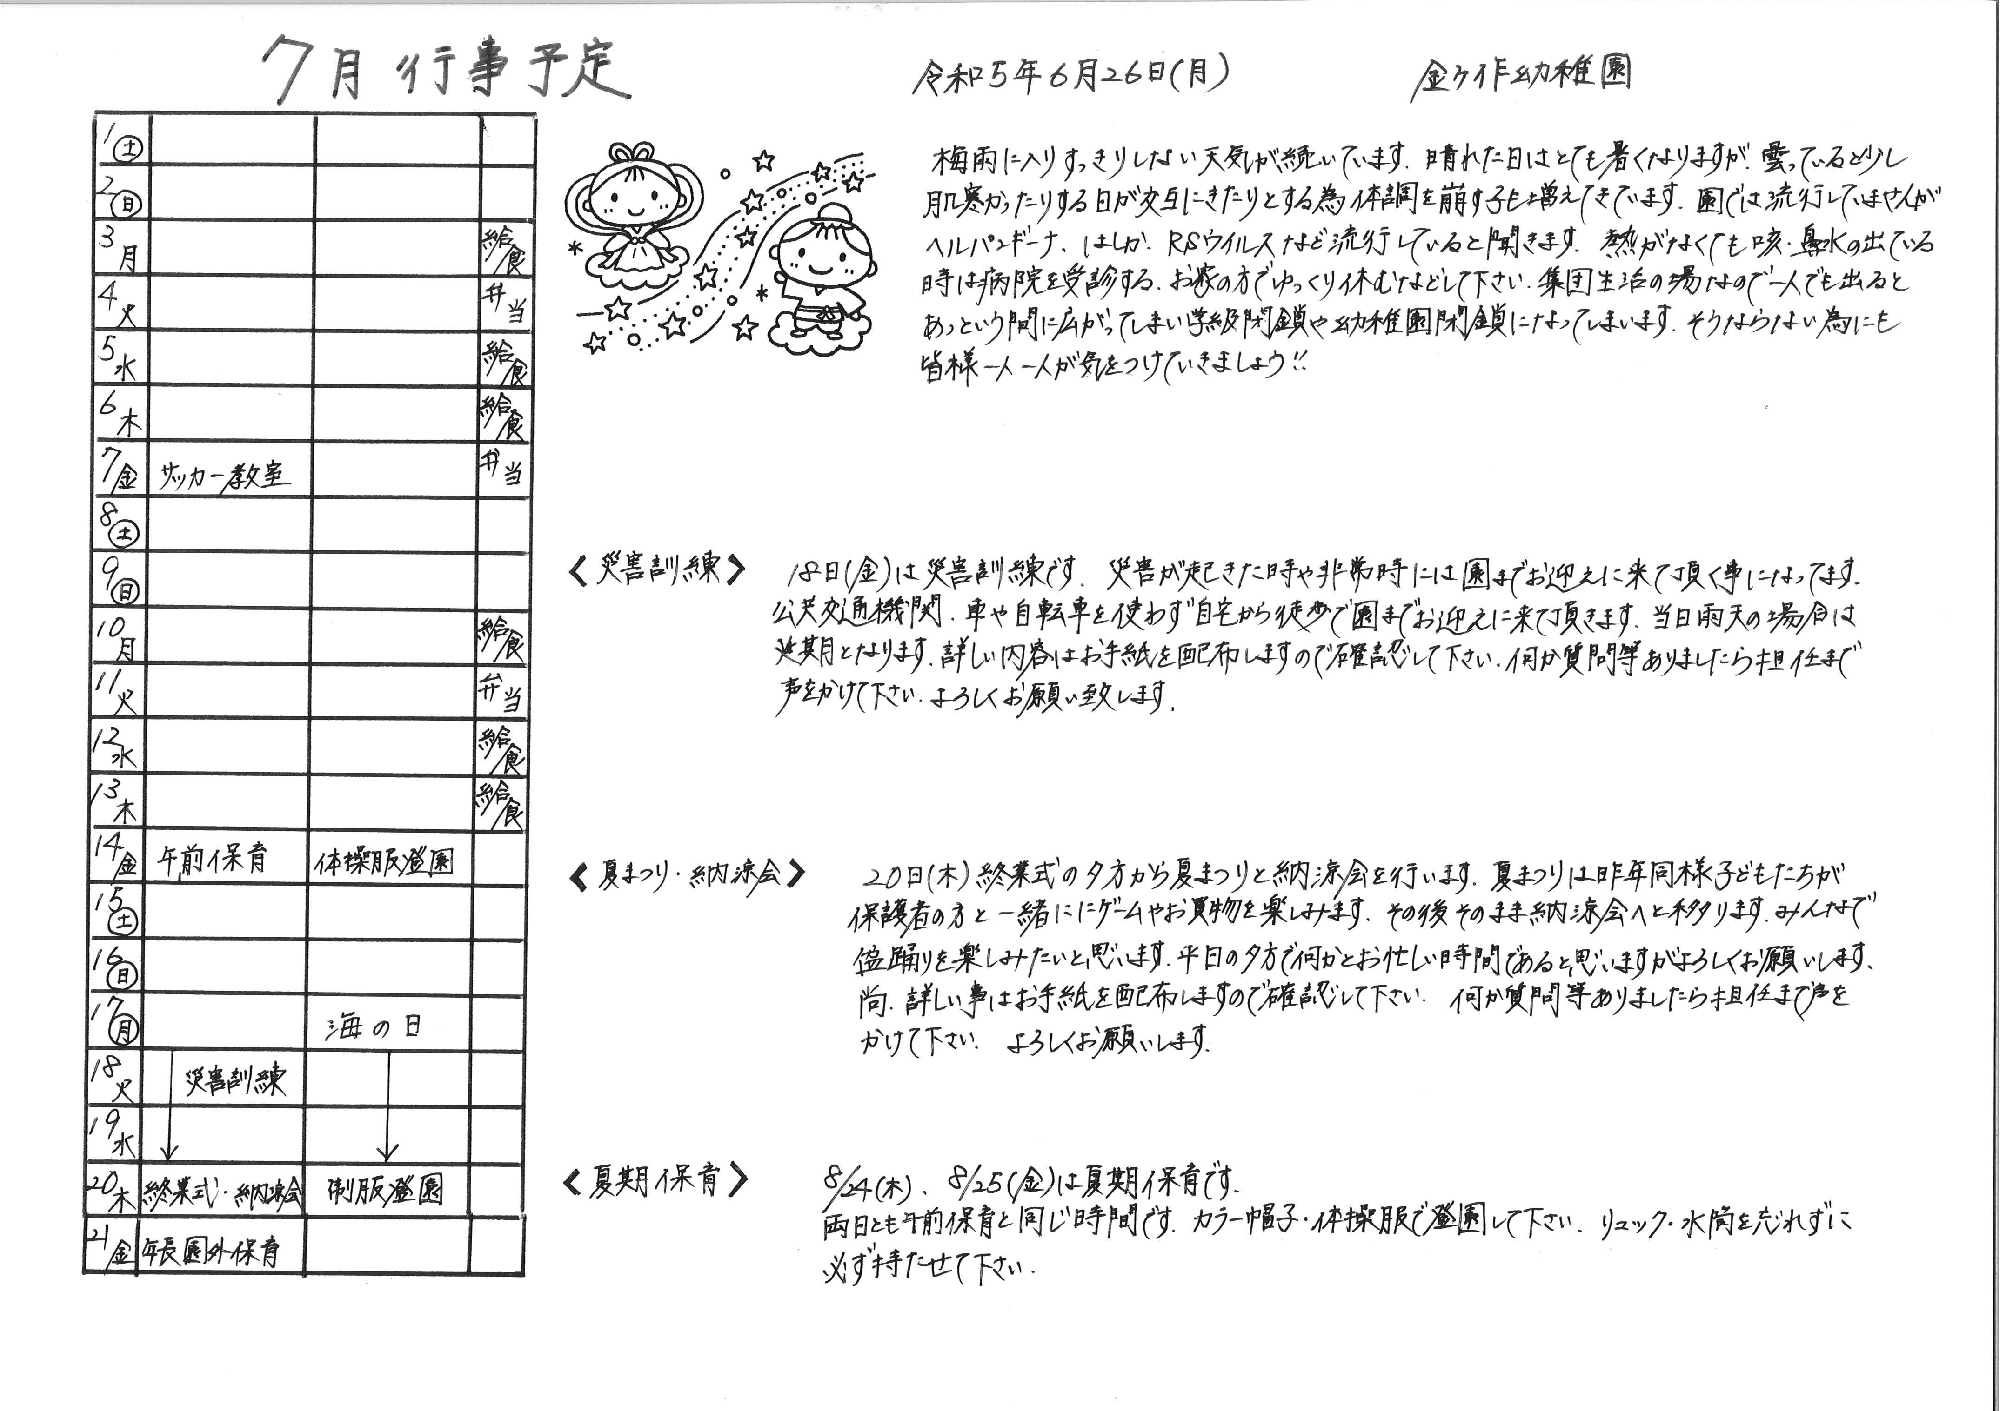 7月行事予定
令和5年6月26日(月)
金ケ作幼稚園
1 土
2 日
3 月 給食
4 火 弁当
5 水 給食
6 木 給食
7 金 サッカー教室 弁当
8 土
9 日
10 月 給食
11 火 弁当
12 水 給食
13 木 給食
14 金 午前保育 体操服登園
15 土
16 日
17 月 海の日
18 火 災害訓練
19 水
20 木 終業式・納涼会 制服登園
21 金 年長園外保育
梅雨に入りすっきりしない天気が続いています。晴れた日はとても暑くなりますが、曇っていると少し
肌寒かったりする日が交互にきたりとする為体調を崩す子も増えてきています。園では流行していませんが
ヘルパンギーナ、はしか、RSウイルスなど流行していると聞きます。熱がなくても咳・鼻水の出ている
時は病院を受診する、お家の方でゆっくり休むなどして下さい。集団生活の場なので一人でも出ると
あっという間に広がってしまい学級閉鎖や幼稚園閉鎖になってしまいます。そうならない為にも
皆様一人一人が気をつけていきましょう!!
〈災害訓練〉 18日(金)は災害訓練です。災害が起きた時や非常時には園までお迎えに来て頂く事になってます。
公共交通機関、車や自転車を使わず自宅から徒歩で園までお迎えに来て頂きます。当日雨天の場合は
延期となります。詳しい内容はお手紙を配布しますので確認して下さい。何か質問等ありましたら担任まで
声をかけて下さい。よろしくお願い致します。
〈夏まつり・納涼会〉 20日(木)終業式の夕方から夏まつりと納涼会を行います。夏まつりは昨年同様子どもたちが
保護者の方と一緒ににゲームやお買物を楽しみます。その後そのまま納涼会へと移ります。みんなで
盆踊りを楽しみたいと思います。平日の夕方で何かとお忙しい時間であると思いますがよろしくお願いします。
尚、詳しい事はお手紙を配布しますので確認して下さい。何か質問等ありましたら担任まで声を
かけて下さい。よろしくお願いします。
〈夏期保育〉 8/24(木)、8/25(金)は夏期保育です。
両日とも午前保育と同じ時間です。カラー帽子・体操服で登園して下さい。リュック・水筒を忘れずに
必ず持たせて下さい。